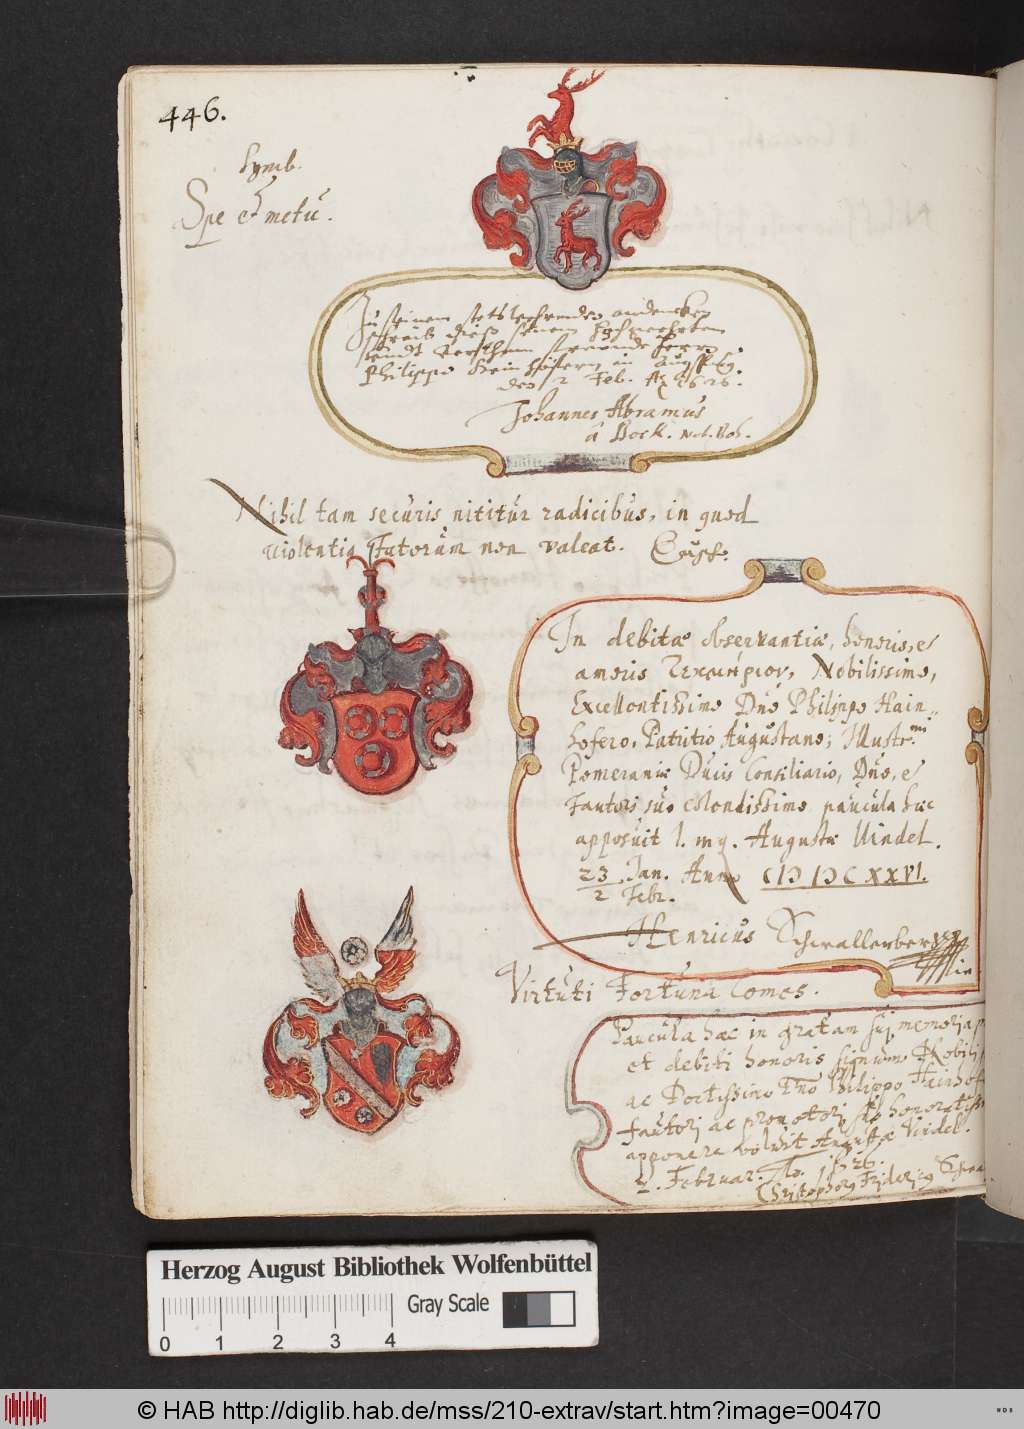 446.
Symb.
Spe et metu.
Zu seinem stetswehrenden andencken
schreib dieß seinem hochgeehrten
undt freunde Herrn
Philippo Heinhofern in Augspurg
den 2 Feb. Aº 1626.
Johannes Abramus
à Bock. Nob. Boh.
Nihil tam securis nititur radicibus, in quod
violentia Fatorum non valeat.
In debitae observantiae, honoris, et
amoris τεκμήριον, Nobilissimo,
Excellentissimo Dno Philippo Hain-
hofero, Patritio Augustano; Illustr.mi
Pomeraniae Ducis Consiliario, Dno, et
Fautori suo colendissimo paucula haec
apposuit l. mq. Augustae Vindel.
23 Jan. Anno CIↃ IↃC XXVI.
2 Febr.
Henricus Schwallenberg
Virtuti Fortuna Comes.
Paucula haec in gratam suj memoriam
et debiti honoris signum Nobili
ac Doctissimo Dno Philippo Hainhof
fautorj ac promotorj suo honoratiss
apponere voluit Augustae Vindel.
2. Februar. Ao. 1626.
Christophorg Fridericg Schwa
Herzog August Bibliothek Wolfenbüttel
Gray Scale
0 1 2 3 4
© HAB http://diglib.hab.de/mss/210-extrav/start.htm?image=00470